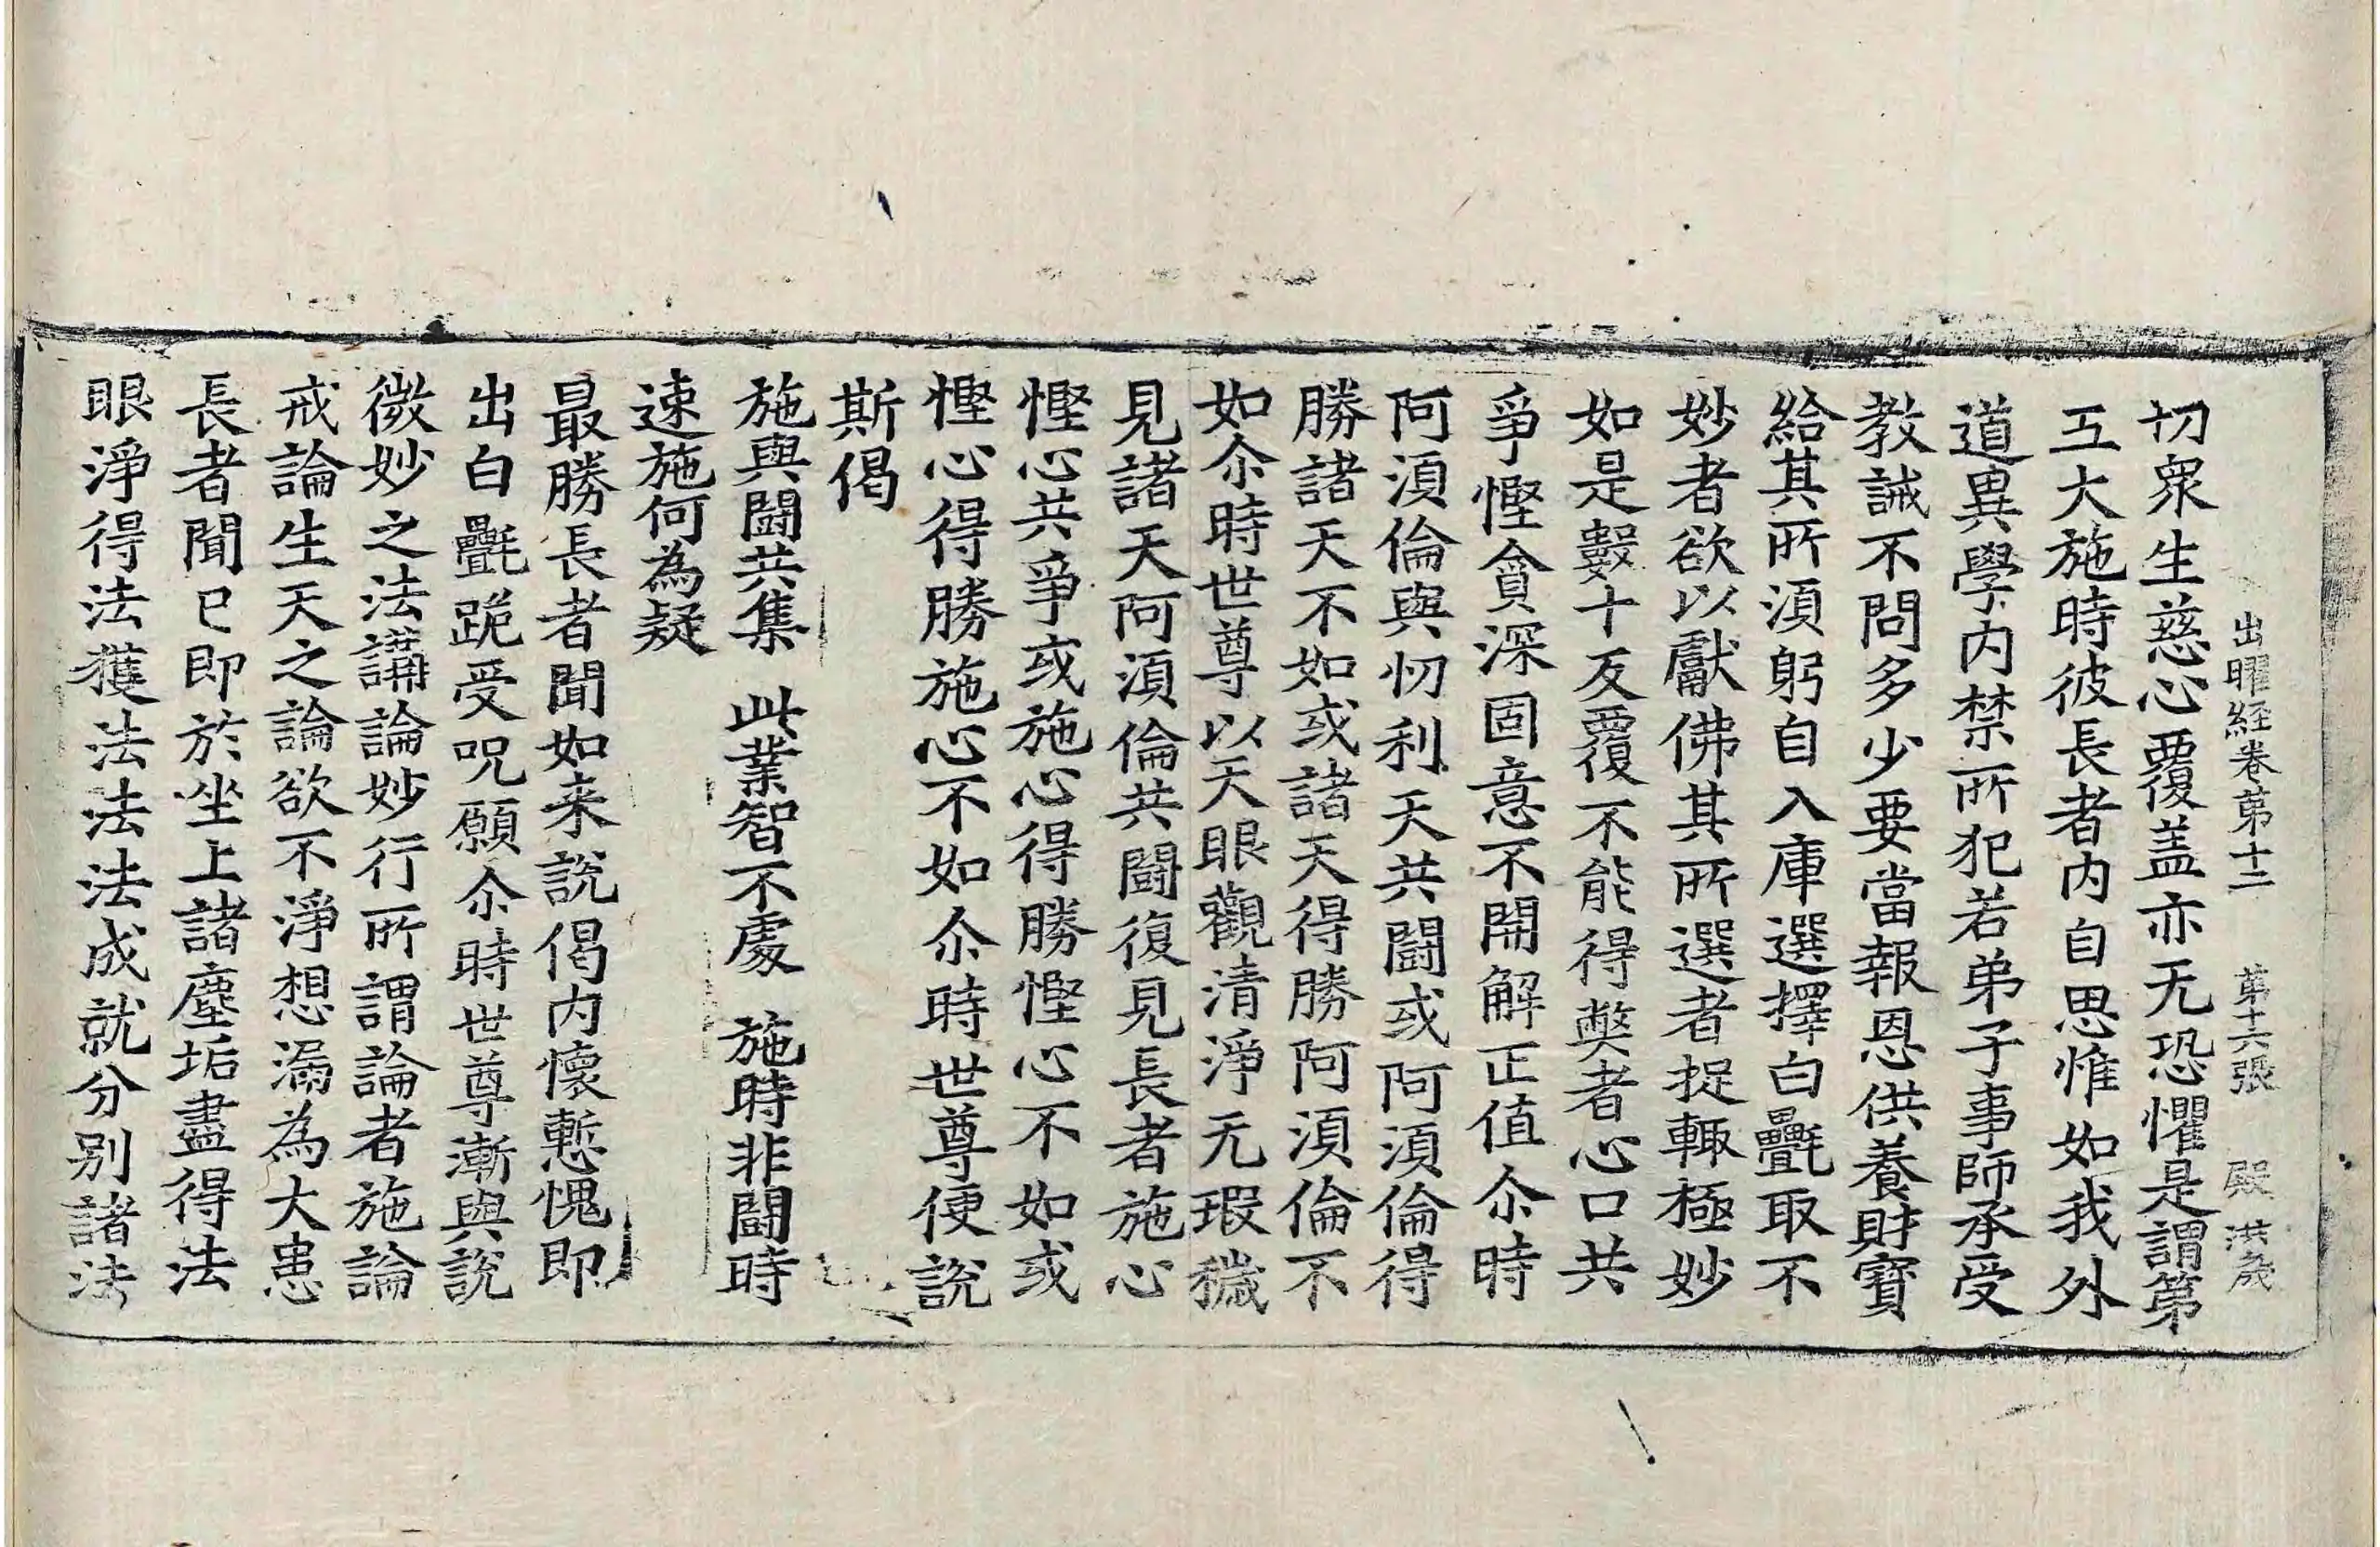 出曜経卷苐十二　苐十六張　殿　洪歳
切衆生慈心覆盖亦无恐懼是謂第
五大施時彼長者内自思惟如我外
道異學内禁所犯若弟子事師承受
教誡不問多少要當報恩供養財寶
給其所湏躬自入庫選擇白㲲取不
妙者欲以獻佛其所選者捉輙極妙
如是數十反覆不能得弊者心口共
爭慳貪深固意不開解正值尒時
阿湏倫與忉利天共鬪或阿湏倫得
勝諸天不如或諸天得勝阿湏倫不
如尒時世尊以天眼觀清淨无瑕穢
見諸天阿湏倫共鬪復見長者施心
慳心共爭或施心得勝慳心不如或
慳心得勝施心不如尒時世尊便說
斯偈
施與鬪共集　此業智不處　施時非鬪時
速施何為疑
最勝長者聞如来說偈内懷慙愧即
出白㲲跪受呪願尒時世尊漸與說
微妙之法講論妙行所謂論者施論
戒論生天之論欲不淨想漏為大患
長者聞已即於坐上諸塵垢盡得法
眼淨得法獲法法法成就分別諸法